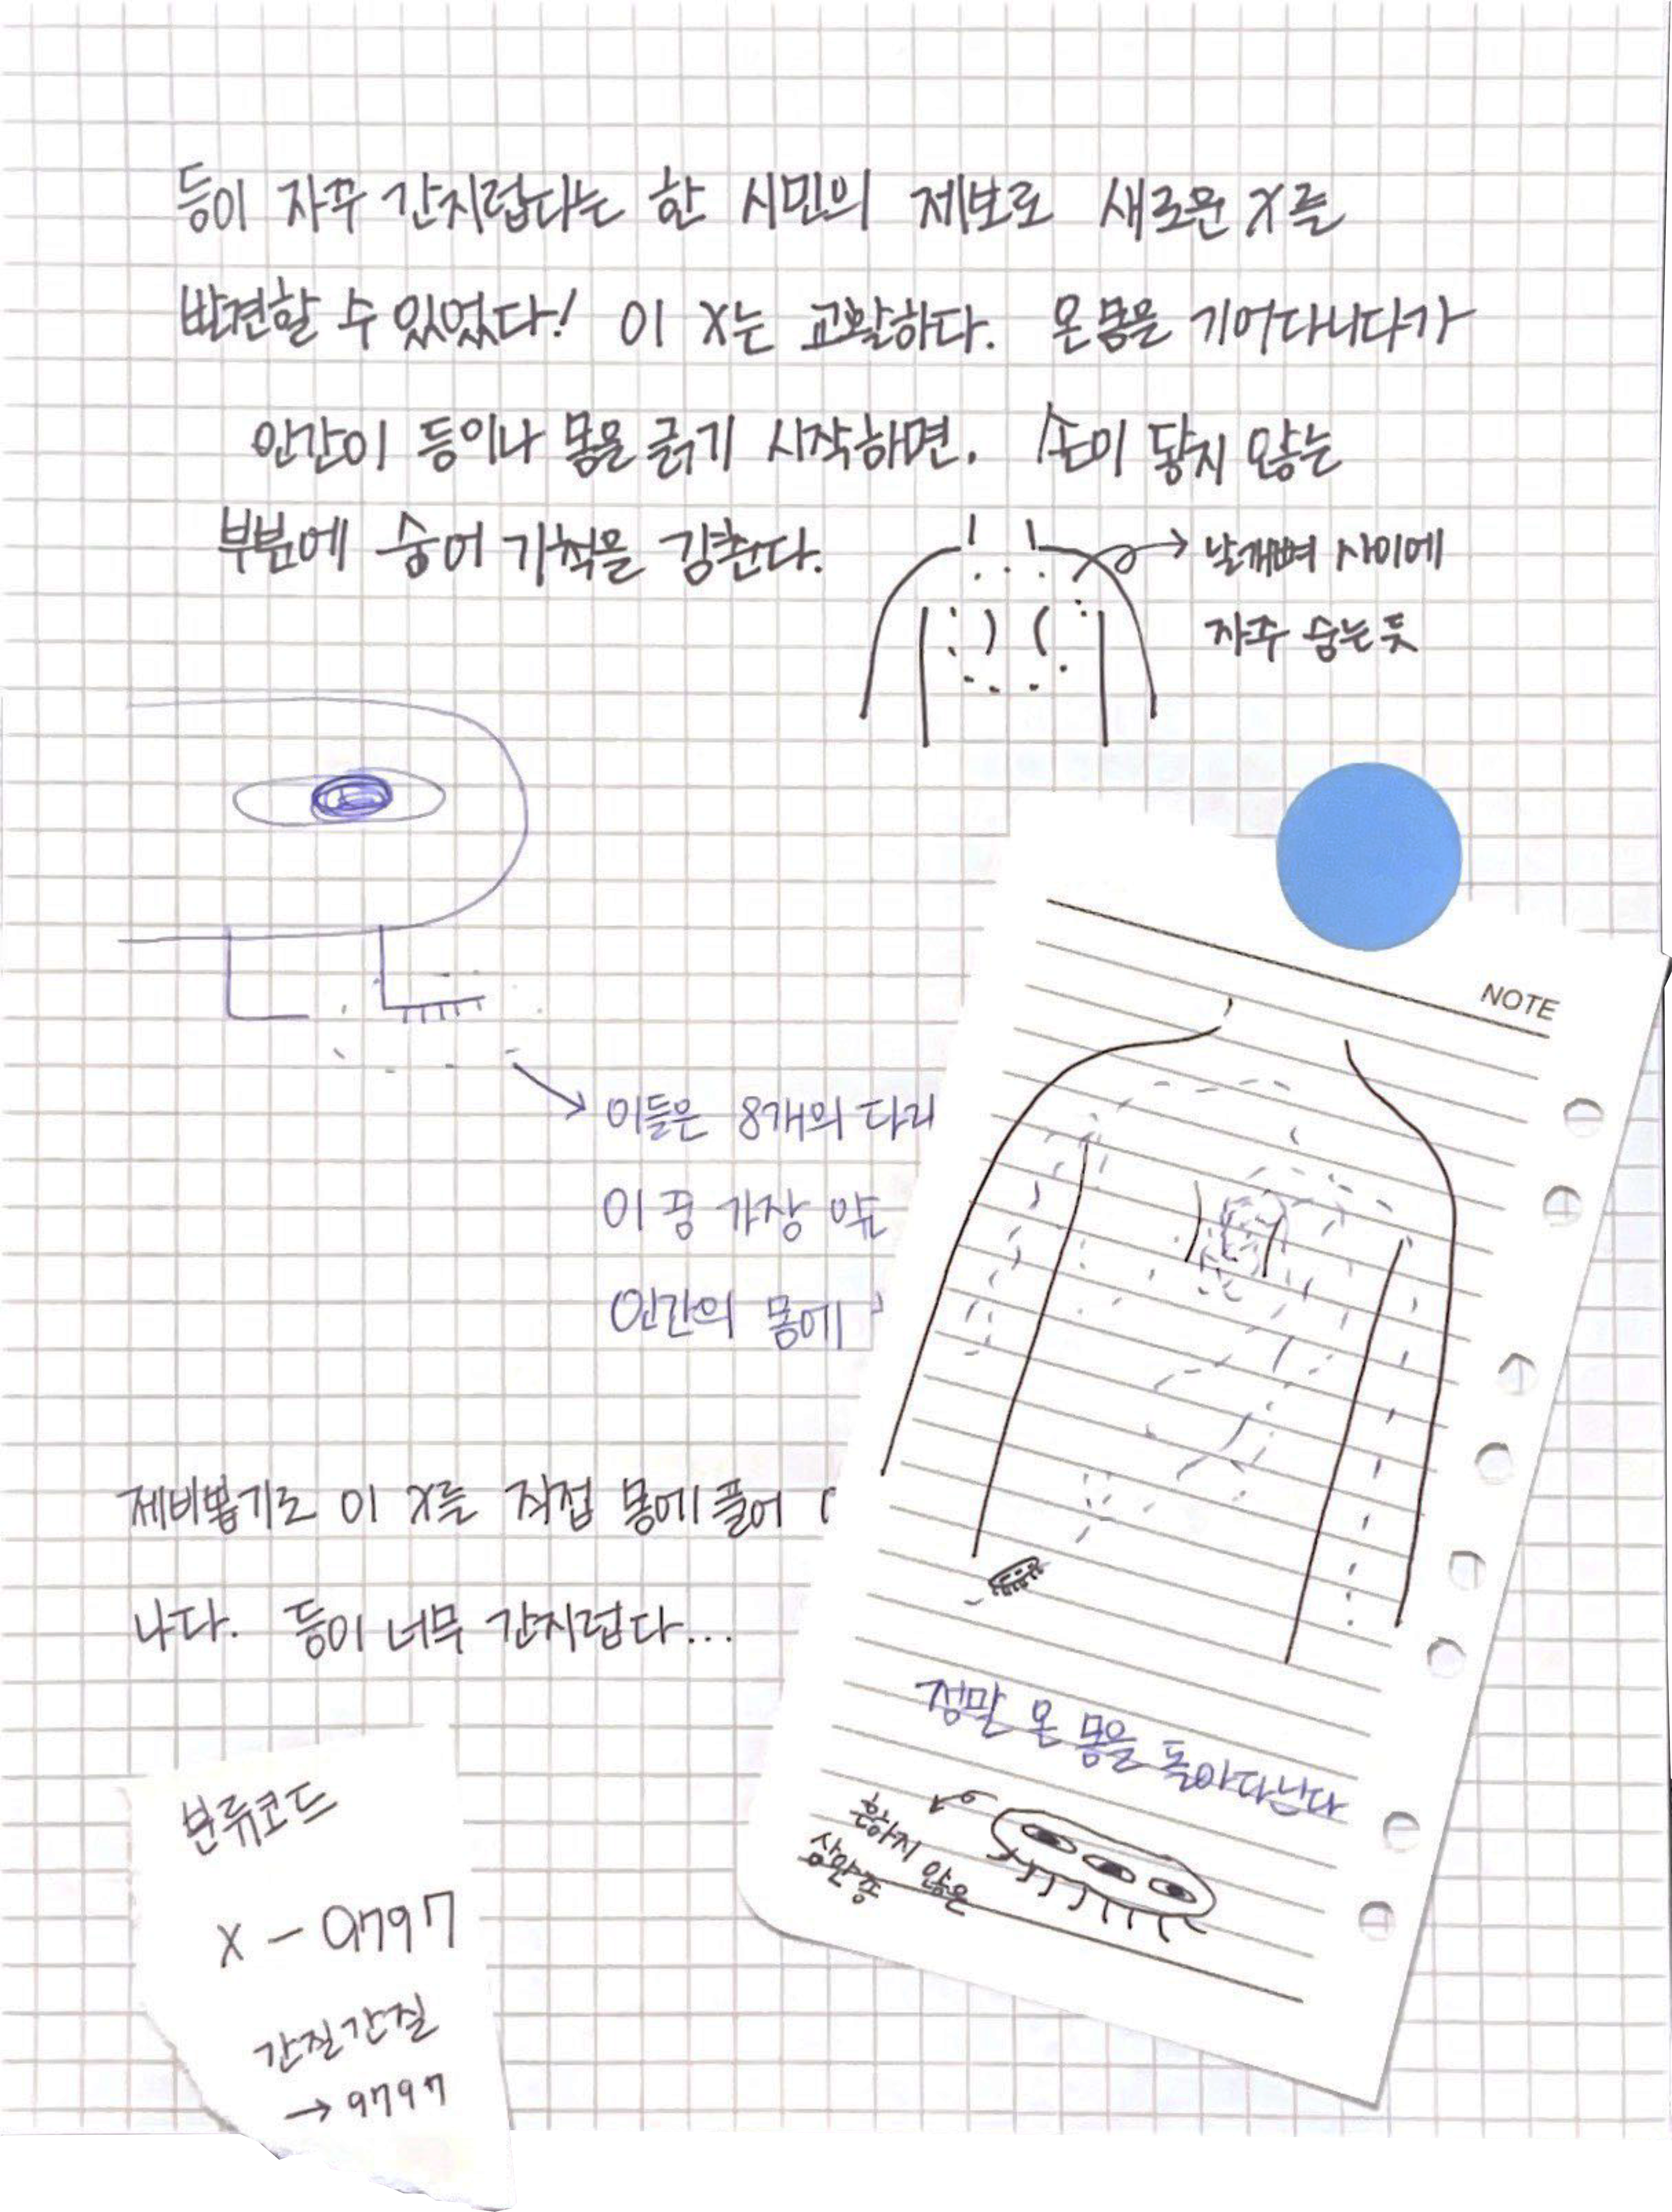 등이 자꾸 간지럽다는 한 시민의 제보로 새로운 X를
발견할 수 있었다! 이 X는 교활하다. 온몸을 기어다니다가
인간이 등이나 몸을 긁기 시작하면. 손이 닿지 않는
부분에 숨어 기척을 감춘다.
날개뼈 사이에
자주 숨는 듯
이들은 8개의 다리
이 중 가장
인간의 몸에
제비뽑기로 이 X를 직접 몸에 풀어
나다. 등이 너무 간지럽다...
NOTE
정말 온 몸을 돌아다닌다
흔하지 않은
삼안종
분류코드
X - 9797
간질간질
→ 9797